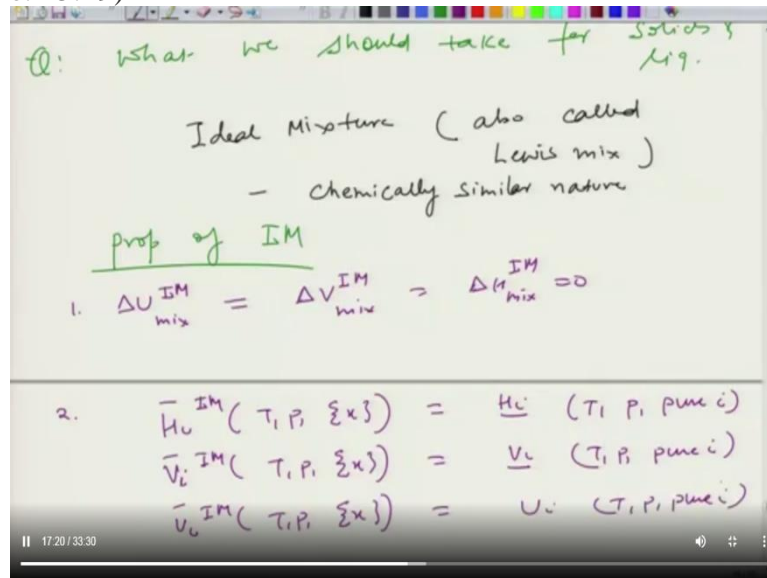 Q: what we should take for Solids & liq.
Ideal Mixture (also called
Lewis mix)
- chemically similar nature
prop of IM
1. ΔU^{IM}_{mix} = ΔV^{IM}_{mix} = ΔH^{IM}_{mix} = 0
2. H̅_i^{IM} (T, P, {x}) = H_i (T, P, pure i)
V̅_i^{IM} (T, P, {x}) = V_i (T, P, pure i)
U̅_i^{IM} (T, P, {x}) = U_i (T, P, pure i)
17:20 / 33:30